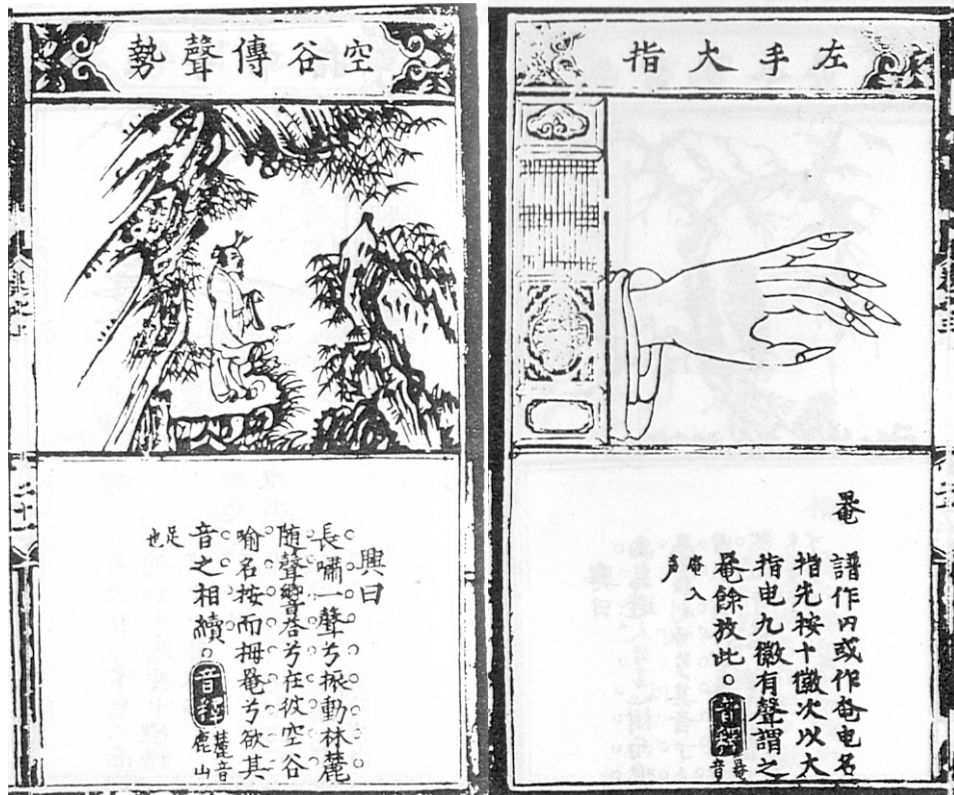 左手大指
罨　譜作内或作奄电名
指先按十徽次以大
指电九徽有聲謂之
罨餘放此。音釋罨音
入声
空谷傳聲勢
興曰
長嘯一聲兮振動林麓
随聲響荅兮在彼空谷
喻名按而拇罨兮欲其
音之相續。音釋麓音鹿山
足也